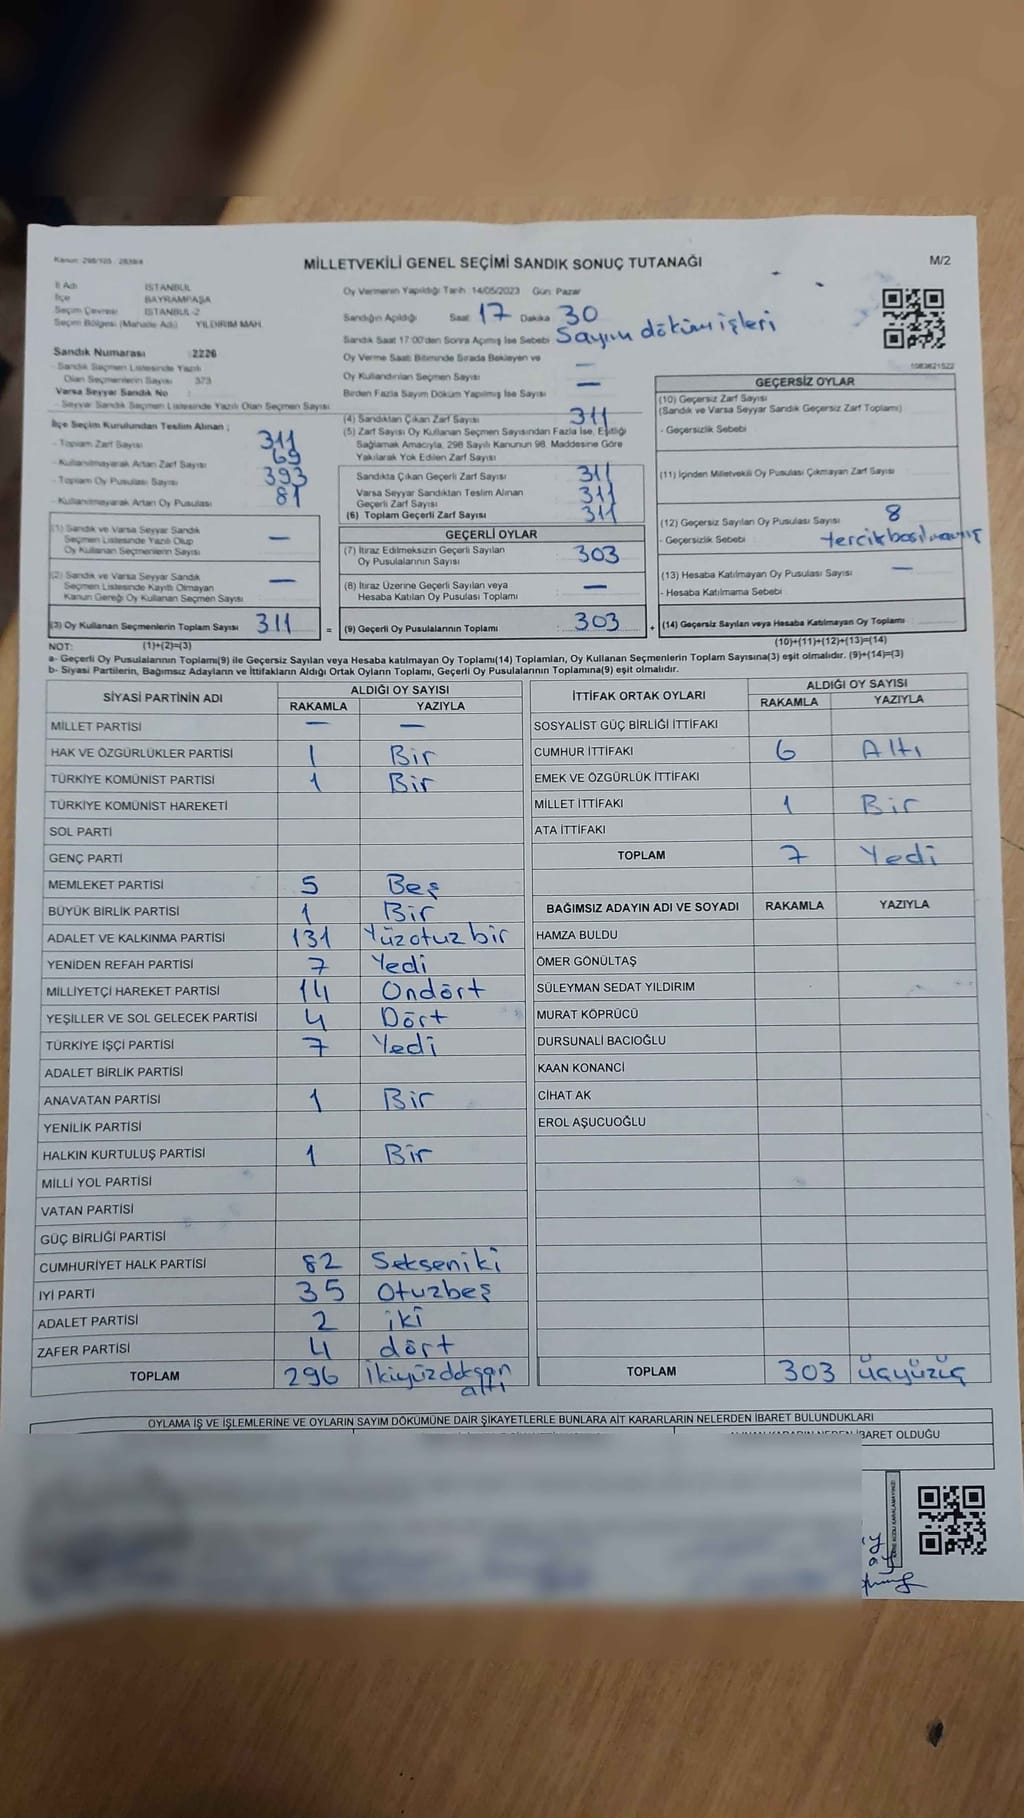 Kanun: 298/105 - 2839/4
MİLLETVEKİLİ GENEL SEÇİMİ SANDIK SONUÇ TUTANAĞI
M/2
İl Adı İSTANBUL
İlçe BAYRAMPAŞA
Seçim Çevresi İSTANBUL-2
Seçim Bölgesi (Mahalle Adı) YILDIRIM MAH.
Sandık Numarası :2226
- Sandık Seçmen Listesinde Yazılı
Olan Seçmenlerin Sayısı 373
Varsa Seyyar Sandık No
- Seyyar Sandık Seçmen Listesinde Yazılı Olan Seçmen Sayısı:
İlçe Seçim Kurulundan Teslim Alınan ;
- Toplam Zarf Sayısı 311
- Kullanılmayarak Artan Zarf Sayısı 69
- Toplam Oy Pusulası Sayısı 393
- Kullanılmayarak Artan Oy Pusulası 81
(1) Sandık ve Varsa Seyyar Sandık
Seçmen Listesinde Yazılı Olup
Oy Kullanan Seçmenlerin Sayısı —
(2) Sandık ve Varsa Seyyar Sandık
Seçmen Listesinde Kayıtlı Olmayan
Kanun Gereği Oy Kullanan Seçmen Sayısı —
(3) Oy Kullanan Seçmenlerin Toplam Sayısı 311 =
Oy Vermenin Yapıldığı Tarih 14/05/2023 Gün: Pazar
Sandığın Açıldığı Saat 17 Dakika 30
Sandık Saat 17:00'den Sonra Açılmış İse Sebebi Sayım döküm işleri
Oy Verme Saati Bitiminde Sırada Bekleyen ve
Oy Kullandırılan Seçmen Sayısı —
Birden Fazla Sayım Döküm Yapılmış İse Sayısı —
(4) Sandıktan Çıkan Zarf Sayısı 311
(5) Zarf Sayısı Oy Kullanan Seçmen Sayısından Fazla İse, Eşitliği
Sağlamak Amacıyla, 298 Sayılı Kanunun 98. Maddesine Göre
Yakılarak Yok Edilen Zarf Sayısı
Sandıkta Çıkan Geçerli Zarf Sayısı 311
Varsa Seyyar Sandıktan Teslim Alınan
Geçerli Zarf Sayısı 311
(6) Toplam Geçerli Zarf Sayısı 311
GEÇERLİ OYLAR
(7) İtiraz Edilmeksizin Geçerli Sayılan
Oy Pusulalarının Sayısı 303
(8) İtiraz Üzerine Geçerli Sayılan veya
Hesaba Katılan Oy Pusulası Toplamı —
(9) Geçerli Oy Pusulalarının Toplamı 303 +
1083621522
GEÇERSİZ OYLAR
(10) Geçersiz Zarf Sayısı
(Sandık ve Varsa Seyyar Sandık Geçersiz Zarf Toplamı)
- Geçersizlik Sebebi
(11) İçinden Milletvekili Oy Pusulası Çıkmayan Zarf Sayısı
(12) Geçersiz Sayılan Oy Pusulası Sayısı 8
- Geçersizlik Sebebi tercik basılmamış
(13) Hesaba Katılmayan Oy Pusulası Sayısı —
- Hesaba Katılmama Sebebi
(14) Geçersiz Sayılan veya Hesaba Katılmayan Oy Toplamı
NOT: (1)+(2)=(3) (10)+(11)+(12)+(13)=(14)
a- Geçerli Oy Pusulalarının Toplamı(9) ile Geçersiz Sayılan veya Hesaba katılmayan Oy Toplamı(14) Toplamları, Oy Kullanan Seçmenlerin Toplam Sayısına(3) eşit olmalıdır. (9)+(14)=(3)
b- Siyasi Partilerin, Bağımsız Adayların ve İttifakların Aldığı Ortak Oyların Toplamı, Geçerli Oy Pusulalarının Toplamına(9) eşit olmalıdır.
SİYASİ PARTİNİN ADI ALDIĞI OY SAYISI
RAKAMLA YAZIYLA
MİLLET PARTİSİ — —
HAK VE ÖZGÜRLÜKLER PARTİSİ 1 Bir
TÜRKİYE KOMÜNİST PARTİSİ 1 Bir
TÜRKİYE KOMÜNİST HAREKETİ
SOL PARTİ
GENÇ PARTİ
MEMLEKET PARTİSİ 5 Beş
BÜYÜK BİRLİK PARTİSİ 1 Bir
ADALET VE KALKINMA PARTİSİ 131 Yüzotuz bir
YENİDEN REFAH PARTİSİ 7 Yedi
MİLLİYETÇİ HAREKET PARTİSİ 14 Ondört
YEŞİLLER VE SOL GELECEK PARTİSİ 4 Dört
TÜRKİYE İŞÇİ PARTİSİ 7 Yedi
ADALET BİRLİK PARTİSİ
ANAVATAN PARTİSİ 1 Bir
YENİLİK PARTİSİ
HALKIN KURTULUŞ PARTİSİ 1 Bir
MİLLİ YOL PARTİSİ
VATAN PARTİSİ
GÜÇ BİRLİĞİ PARTİSİ
CUMHURİYET HALK PARTİSİ 82 Sekseniki
İYİ PARTİ 35 Otuzbeş
ADALET PARTİSİ 2 iki
ZAFER PARTİSİ 4 dört
TOPLAM 296 İkiyüzdoksan
altı
İTTİFAK ORTAK OYLARI ALDIĞI OY SAYISI
RAKAMLA YAZIYLA
SOSYALİST GÜÇ BİRLİĞİ İTTİFAKI
CUMHUR İTTİFAKI 6 Altı
EMEK VE ÖZGÜRLÜK İTTİFAKI
MİLLET İTTİFAKI 1 Bir
ATA İTTİFAKI
TOPLAM 7 Yedi
BAĞIMSIZ ADAYIN ADI VE SOYADI RAKAMLA YAZIYLA
HAMZA BULDU
ÖMER GÖNÜLTAŞ
SÜLEYMAN SEDAT YILDIRIM
MURAT KÖPRÜCÜ
DURSUNALİ BACIOĞLU
KAAN KONANCİ
CİHAT AK
EROL AŞUCUOĞLU
TOPLAM 303 üçyüzüç
OYLAMA İŞ VE İŞLEMLERİNE VE OYLARIN SAYIM DÖKÜMÜNE DAİR ŞİKAYETLERLE BUNLARA AİT KARARLARIN NELERDEN İBARET BULUNDUKLARI
İBARET OLDUĞU